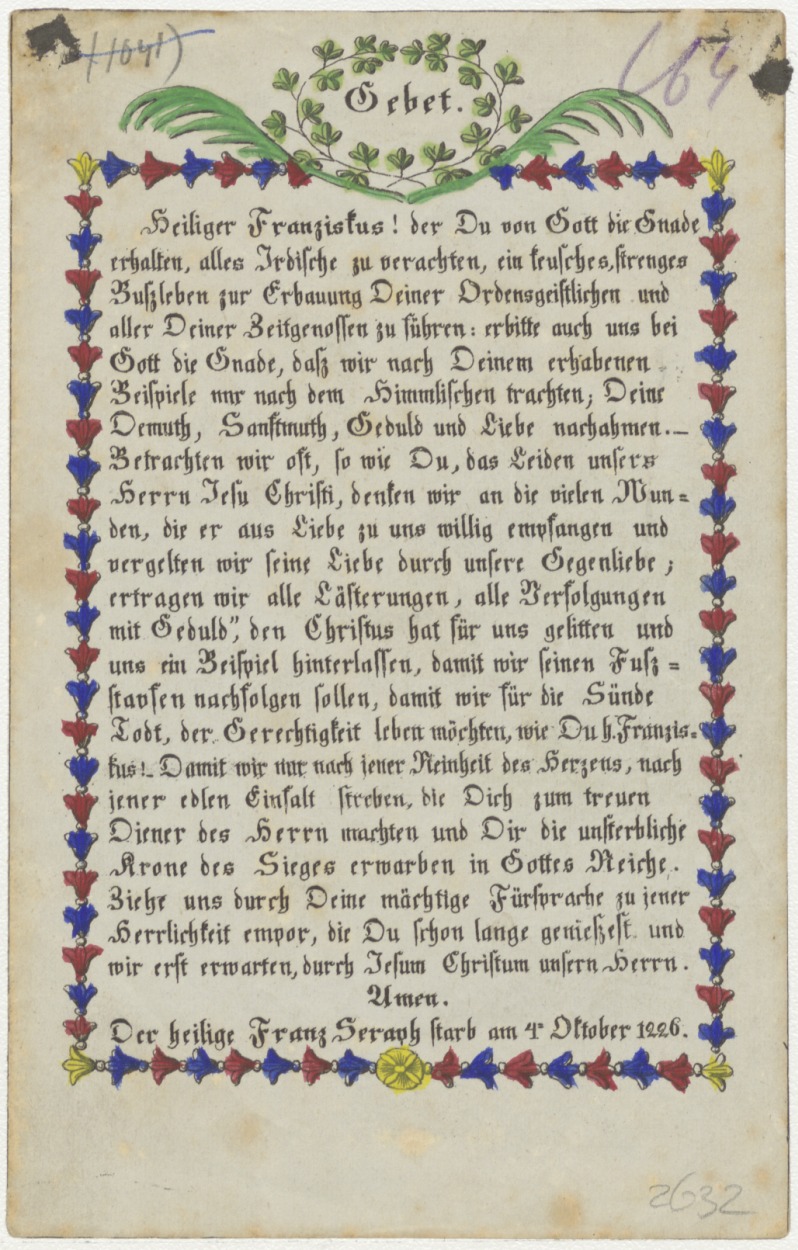 (1041)
(64
Gebet.
Heiliger Franziskus! der Du von Gott die Gnade
erhalten, alles Irdische zu verachten, ein keusches, strenges
Buszleben zur Erbauung Deiner Ordensgeistlichen und
aller Deiner Zeitgenossen zu führen: erbitte auch uns bei
Gott die Gnade, dasz wir nach Deinem erhabenen
Beispiele nur nach dem Himmlischen trachten; Deine
Demuth, Sanftmuth, Geduld und Liebe nachahmen.—
Betrachten wir oft, so wie Du, das Leiden unsers
Herrn Jesu Christi, denken wir an die vielen Wun=
den, die er aus Liebe zu uns willig empfangen und
vergelten wir seine Liebe durch unsere Gegenliebe;
ertragen wir alle Lästerungen, alle Verfolgungen
mit Geduld", den Christus hat für uns gelitten und
uns ein Beispiel hinterlassen, damit wir seinen Fusz=
stapfen nachfolgen sollen, damit wir für die Sünde
Todt, der Gerechtigkeit leben möchten, wie Du h. Franzis=
kus!_ Damit wir nur nach jener Reinheit des Herzens, nach
jener edlen Einfalt streben, die Dich zum treuen
Diener des Herrn machten und Dir die unsterbliche
Krone des Sieges erwarben in Gottes Reiche.
Ziehe uns durch Deine mächtige Fürsprache zu jener
Herrlichkeit empor, die Du schon lange genieszest und
wir erst erwarten, durch Jesum Christum unsern Herrn.
Amen.
Der heilige Franz Seraph starb am 4t Oktober 1226.
2632